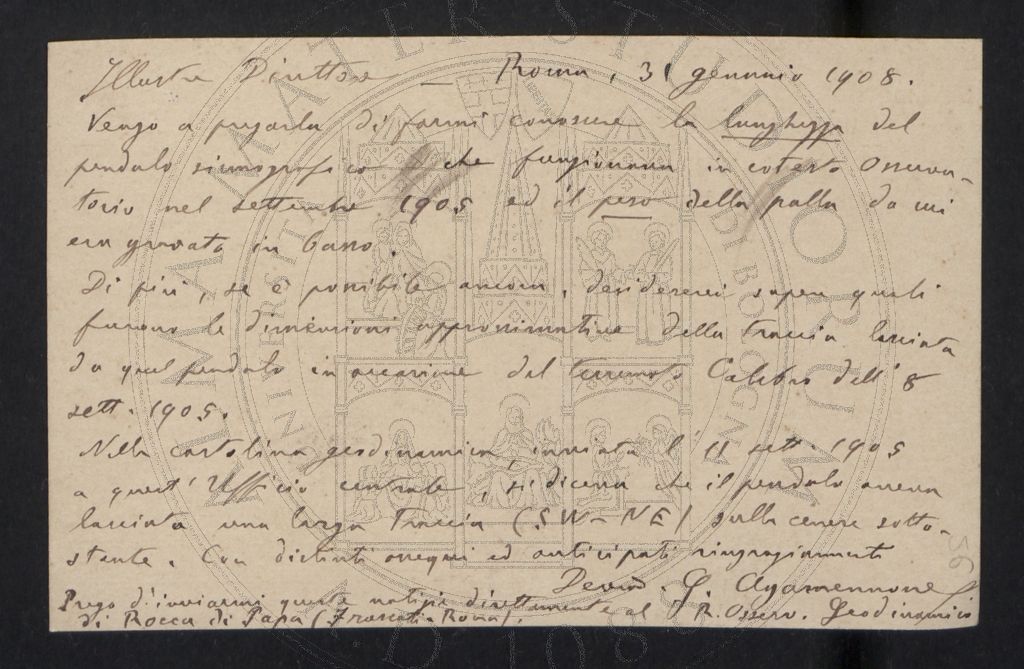 Illustre Direttore Roma, 31 gennaio 1908.
Vengo a pregarla di farmi conoscere la lunghezza del
pendolo sismografico che funzionava in cotesto Osserva-
torio nel settembre 1905 ed il peso della palla da cui
era gravato in basso.
Di più, se è possibile ancora, desidererei sapere quali
furono le dimensioni approssimative della traccia lasciata
da quel pendolo in occasione del terremoto Calabro dell' 8
sett. 1905.
Nella cartolina geodinamica, inviata l' 11 sett. 1905
a quest' Ufficio centrale, si diceva che il pendolo aveva
lasciata una larga traccia (SW-NE) sulla cenere sotto-
stante. Con distinti ossequi ed anticipati ringraziamenti
Devmo. G. Agamennone
Prego d'inviarmi queste notizie direttamente al R. Osserv. Geodinamico
di Rocca di Papa (Frascati-Roma).
ALMA MATER STUDIORUM
UNIVERSITÀ DI BOLOGNA
A.D. 1088